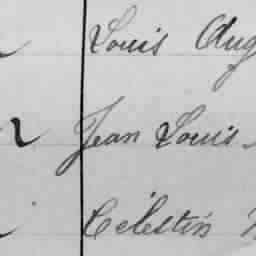 Louis Aug
Jean Louis
Célestin